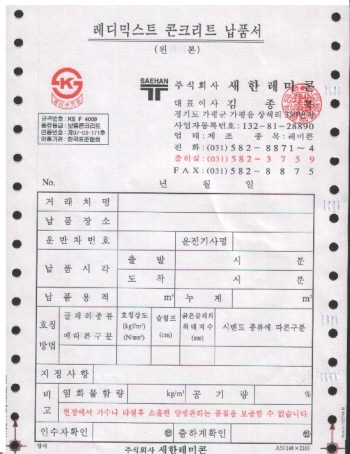 레디믹스트 콘크리트 납품서
(원 본)
SAEHAN
주식회사 새한레미콘
대표이사 김 종
경기도 가평군 가평읍 상색리
사업자등록번호: 132-81-28890
업 태: 제 조 종 목: 레미콘
전 화: (031) 582-8871~4
출하실: (031) 582-3759
FAX: (031) 582-8875
규격번호: KS F 4009
종류등급: 보통콘크리트
인증번호: 제97-03-171호
인증기관: 한국표준협회
No. 년 월 일
거 래 처 명
납 품 장 소
운 반 차 번 호 운전기사명
납 품 시 각 출 발 시 분
도 착 시 분
납 품 용 적 m³ 누 계 m³
호칭방법 골재의종류에따른구분 호칭강도(kgf/m²)(N/mm²) 슬럼프(cm) 굵은골재의최대치수(mm) 시멘트 종류에 따른구분
지 정 사 항
비고 염화물함량 kg/m³ 공 기 량 %
현장에서 가수나 타설후 소홀한 양생관리는 품질을 보증할 수 없습니다.
인수자확인 ㊞ 출하계확인 ㊞
양식 주식회사 새한레미콘 A5(148×210)